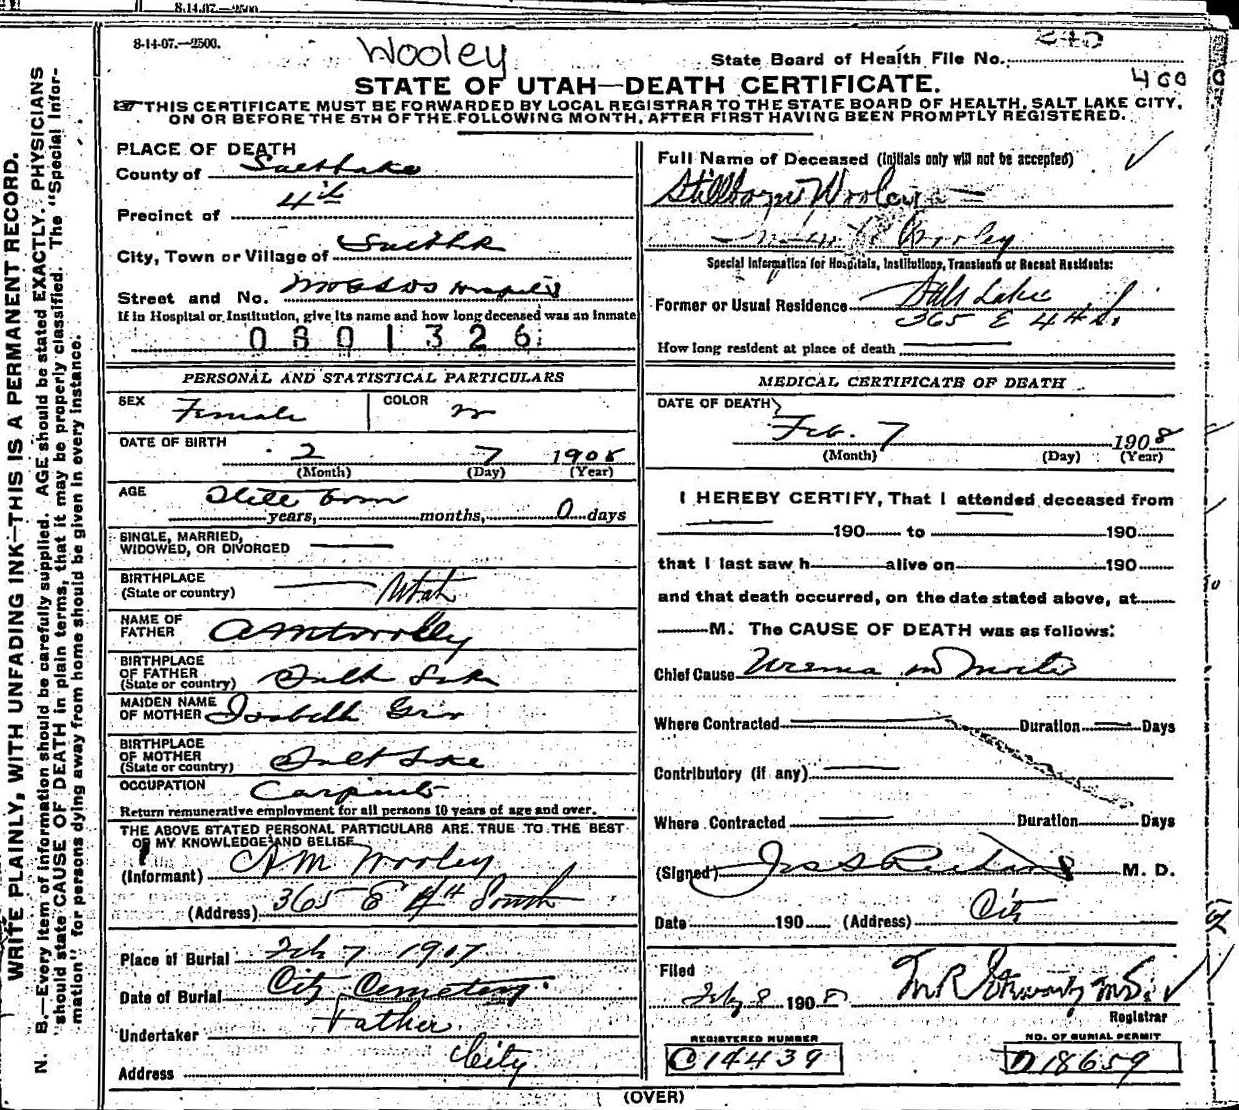 8-14-07.—2500.
8-14-07.—2500.
Wooley
State Board of Health File No.
240
400
STATE OF UTAH—DEATH CERTIFICATE.
THIS CERTIFICATE MUST BE FORWARDED BY LOCAL REGISTRAR TO THE STATE BOARD OF HEALTH, SALT LAKE CITY,
ON OR BEFORE THE 5TH OF THE FOLLOWING MONTH, AFTER FIRST HAVING BEEN PROMPTLY REGISTERED.
WRITE PLAINLY, WITH UNFADING INK—THIS IS A PERMANENT RECORD.
N. B.—Every item of information should be carefully supplied. AGE should be stated EXACTLY. PHYSICIANS
should state CAUSE OF DEATH in plain terms, that it may be properly classified. The "Special Infor-
mation" for persons dying away from home should be given in every instance.
PLACE OF DEATH
County of Salt Lake
Precinct of 4th
City, Town or Village of Salt Lk
Street and No. Hospital
If in Hospital or Institution, give its name and how long deceased was an inmate
0801326
PERSONAL AND STATISTICAL PARTICULARS
SEX Female COLOR W
DATE OF BIRTH 2 7 1908
(Month) (Day) (Year)
AGE Still born
years, months, 0 days
SINGLE, MARRIED,
WIDOWED, OR DIVORCED
BIRTHPLACE
(State or country) Utah
NAME OF
FATHER A M Woolley
BIRTHPLACE
OF FATHER
(State or country) Salt Lake
MAIDEN NAME
OF MOTHER Isabell
BIRTHPLACE
OF MOTHER
(State or country) Salt Lake
OCCUPATION Carpenter
Return remunerative employment for all persons 10 years of age and over.
THE ABOVE STATED PERSONAL PARTICULARS ARE TRUE TO THE BEST
OF MY KNOWLEDGE AND BELIEF
(Informant) A M Wooley
(Address) 365 E 4th South
Place of Burial Feb 7 1907
Date of Burial City Cemetery
Undertaker Father
Address City
Full Name of Deceased (Initials only will not be accepted)
Stillborn Wooley
Wooley
Special Information for Hospitals, Institutions, Transients or Recent Residents:
Former or Usual Residence Salt Lake
365 E 4th S.
How long resident at place of death
MEDICAL CERTIFICATE OF DEATH
DATE OF DEATH
Feb. 7 1908
(Month) (Day) (Year)
I HEREBY CERTIFY, That I attended deceased from
190 to 190
that I last saw h alive on 190
and that death occurred, on the date stated above, at
M. The CAUSE OF DEATH was as follows:
Chief Cause Uremia in Mother
Where Contracted Duration Days
Contributory (if any)
Where Contracted Duration Days
(Signed) M. D.
Date 190 (Address) City
Filed
Feb 8 1908
Registrar
REGISTERED NUMBER
C 14439
NO. OF BURIAL PERMIT
D 18659
(OVER)